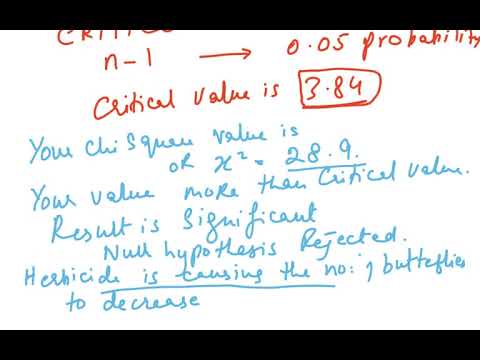 CRITIC
n-1 → 0.05 probability
Critical value is 3.84
Your chi square value is
or x² = 28.9.
Your value more than Critical value.
Result is Significant
Null hypothesis Rejected.
Herbicide is causing the no: of butterflies
to decrease